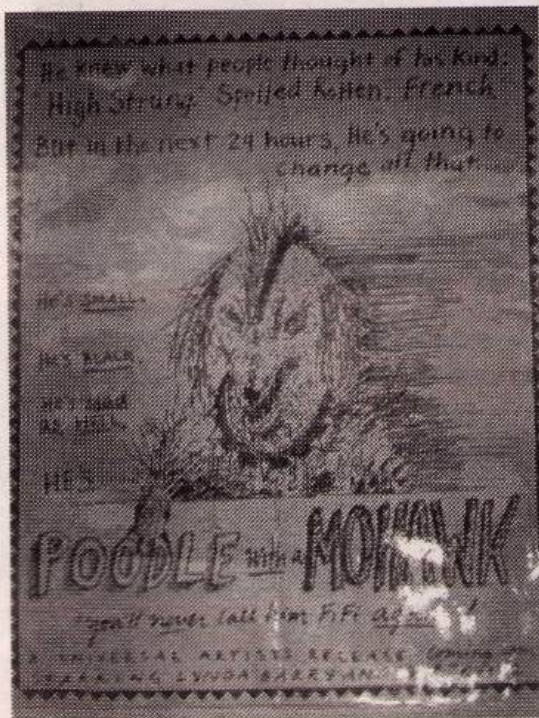 He knew what people thought of his kind:
"High Strung" Spoiled Rotten. French
But in the next 24 hours, He's going to
change all that....
He's SMALL.
He's BLACK.
He's Mad
As Hell.
HE'S
POODLE with a MOHAWK
"you'll never call him FiFi again!"
A UNIVERSAL ARTISTS RELEASE coming
STARRING LYNDA BARRY AN